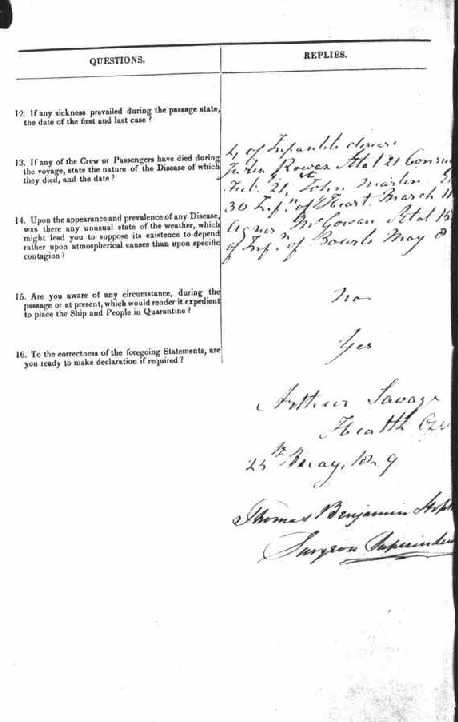 QUESTIONS.
REPLIES.
12. If any sickness prevailed during the passage state,
the date of the first and last case?
13. If any of the Crew or Passengers have died during
the voyage, state the nature of the Disease of which
they died, and the date?
4 of Infantile
Rowes Aetat 21
Feb. 21, John Martin
30 Inf.n of Heart. March 11
Agnes McGowan Aetat 18
of Inf.n of Bowels May 8
14. Upon the appearance and prevalence of any Disease,
was there any unusual state of the weather, which
might lead you to suppose its existence to depend
rather upon atmospherical causes than upon specific
contagion?
15. Are you aware of any circumstance, during the
passage or at present, which would render it expedient
to place the Ship and People in Quarantine?
No
16. To the correctness of the foregoing Statements, are
you ready to make declaration if required?
Yes
Arthur Savage
Health
May,
Thomas Benjamin
Surgeon